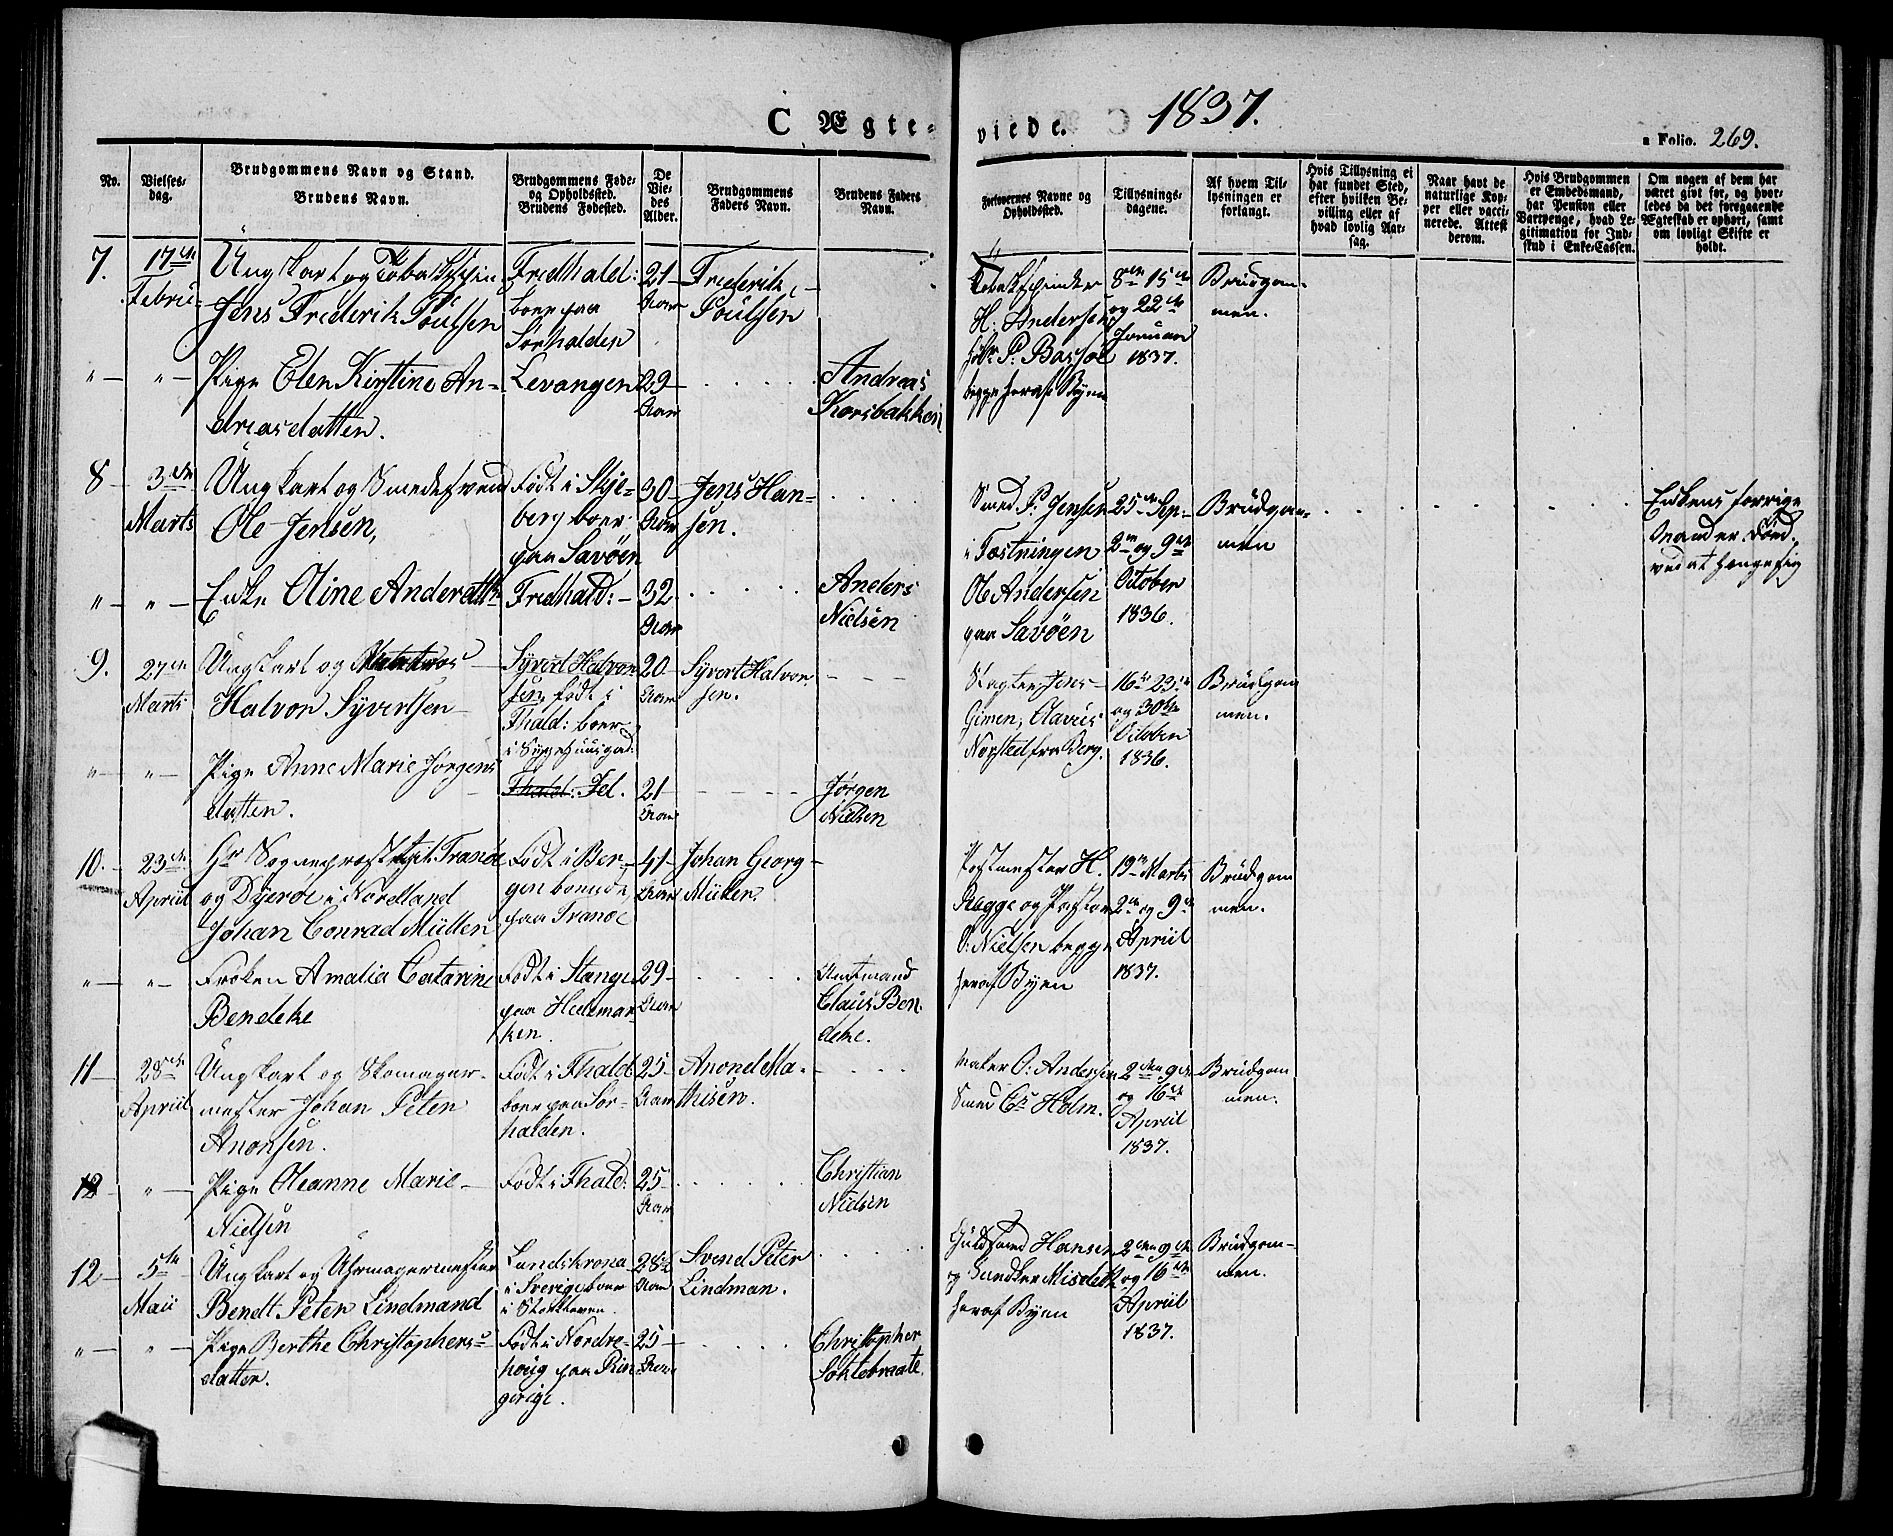 C Ægte-
viede.
1837.
a Folio. 269.
No.
Vielses-
dag.
Brudgommens Navn og Stand.
Brudens Navn.
Brudgommens Føde-
og Opholdssted.
Brudens Fødested.
De
Vie-
des
Alder.
Brudgommens
Faders Navn.
Brudens Faders
Navn.
Forlovernes Navne og
Opholdssted.
Tillysnings-
dagene.
Af hvem Til-
lysningen er
forlangt.
Hvis Tillysning ei
har fundet Sted,
efter hvilken Be-
villing eller af
hvad lovlig Aar-
sag.
Naar havt de
naturlige Kop-
per eller vacci-
nerede. Attest
derom.
Hvis Brudgommen
er Embedsmand,
har Pension eller
Vartpenge, hvad Le-
gitimation for Ind-
skud i Enke-Cassen.
Om nogen af dem har
været givt før, og hvor-
ledes da det foregaaende
Ægteskab er ophørt, samt
om lovligt Skifte er
holdt.
7.
17de
Febru-
Ungkarl og Tobakspin
Jens Frederik Poulssen
Fredhald:
boer paa
Sørhalden
21
Aar
Frederik
Poulssen
Tobakspinder
H: Andersen
P: Bassøe
begge heraf Byen
8de 15de
og 22de
Januar
1837.
Brudgom-
men.
" " Pige Elen Kirstine An-
dreasdatter.
Levangen
29
Aar
Andreas
Korsbakken
8
3die
Marts
Ungkarl og Smedesvend
Ole Jensen,
Født i Skje-
berg boer
paa Savøen
30
Aar
Jens Han-
sen.
Smed P: Jensen
i Fæstningen
Ole Andersen
paa Savøen
25de Sep-
2den og 9de
October
1836.
Brudgom-
men
Enkens forrige
Mand er død
ved at hænge sig
" " Enke Oline Andersdtr
Fredhald:
32
Aar
Anders
Nielsen
9.
27de
Marts
Ungkarl og
Halvor Syvertsen
Syvert Halvor
sen født i
Fhald: boer
i Sygehuusgad:
20
Aar
Syvert Halvor
sen.
Slagter Jens
Gimen, Olavus
Norsted fra Berg.
16de 23de
og 30te
October
1836.
Brudgom
men.
" " Pige Anne Marie Jørgens
datter.
Fhald: Id.
21
Aar
Jørgen
Nielsen
10.
23de
Apriil
Hr Sognepræst til Tranøe
og Dyerøe i Nordland
Johan Conrad Müller
Født i Ber-
gen boende
paa Tranøe
41
Aar
Johan Georg
Müller.
Postmester H.
Rægge og Pastor
O: Nielsen begge
heraf Byen
19de Marts
2den og 9de
Apriil
1837.
Brudgom
men.
" " Frøken Amalia Catarine
Bendeke
Født i Stange
paa Hedemar-
ken.
29
Aar
Amtmand
Claus Ben
deke.
11
28de
Apriil
Ungkarl og Skomager-
mester Johan Peter
Anonsen.
Født i Fhald:
boer paa Sør-
halden.
25
Aar
Anond Ma-
thisen.
Maler O: Andersen
Smed Cs Holm.
2den 9de
og 16de
Apriil
1837.
Brudgom
men.
12 " Pige Oleanne Marie
Nielsen
Født i Fhald:
25
Aar
Christian
Nielsen
12.
5te
Maii
Ungkarl og Uhrmagermester
Bendt Peter Lindmand
Landskrona
i Sverige boer
i
28
Aar
Svend Peter
Lindman.
Guldsmed Hansen
og
heraf Byen
2den 9de
og 16de
Apriil
1837.
Brudgom-
men.
" " Pige Berthe Christophers-
datter.
Født i Nordre-
houg paa Rin
gerige.
25
Aar
Christopher
Sohlebraate.